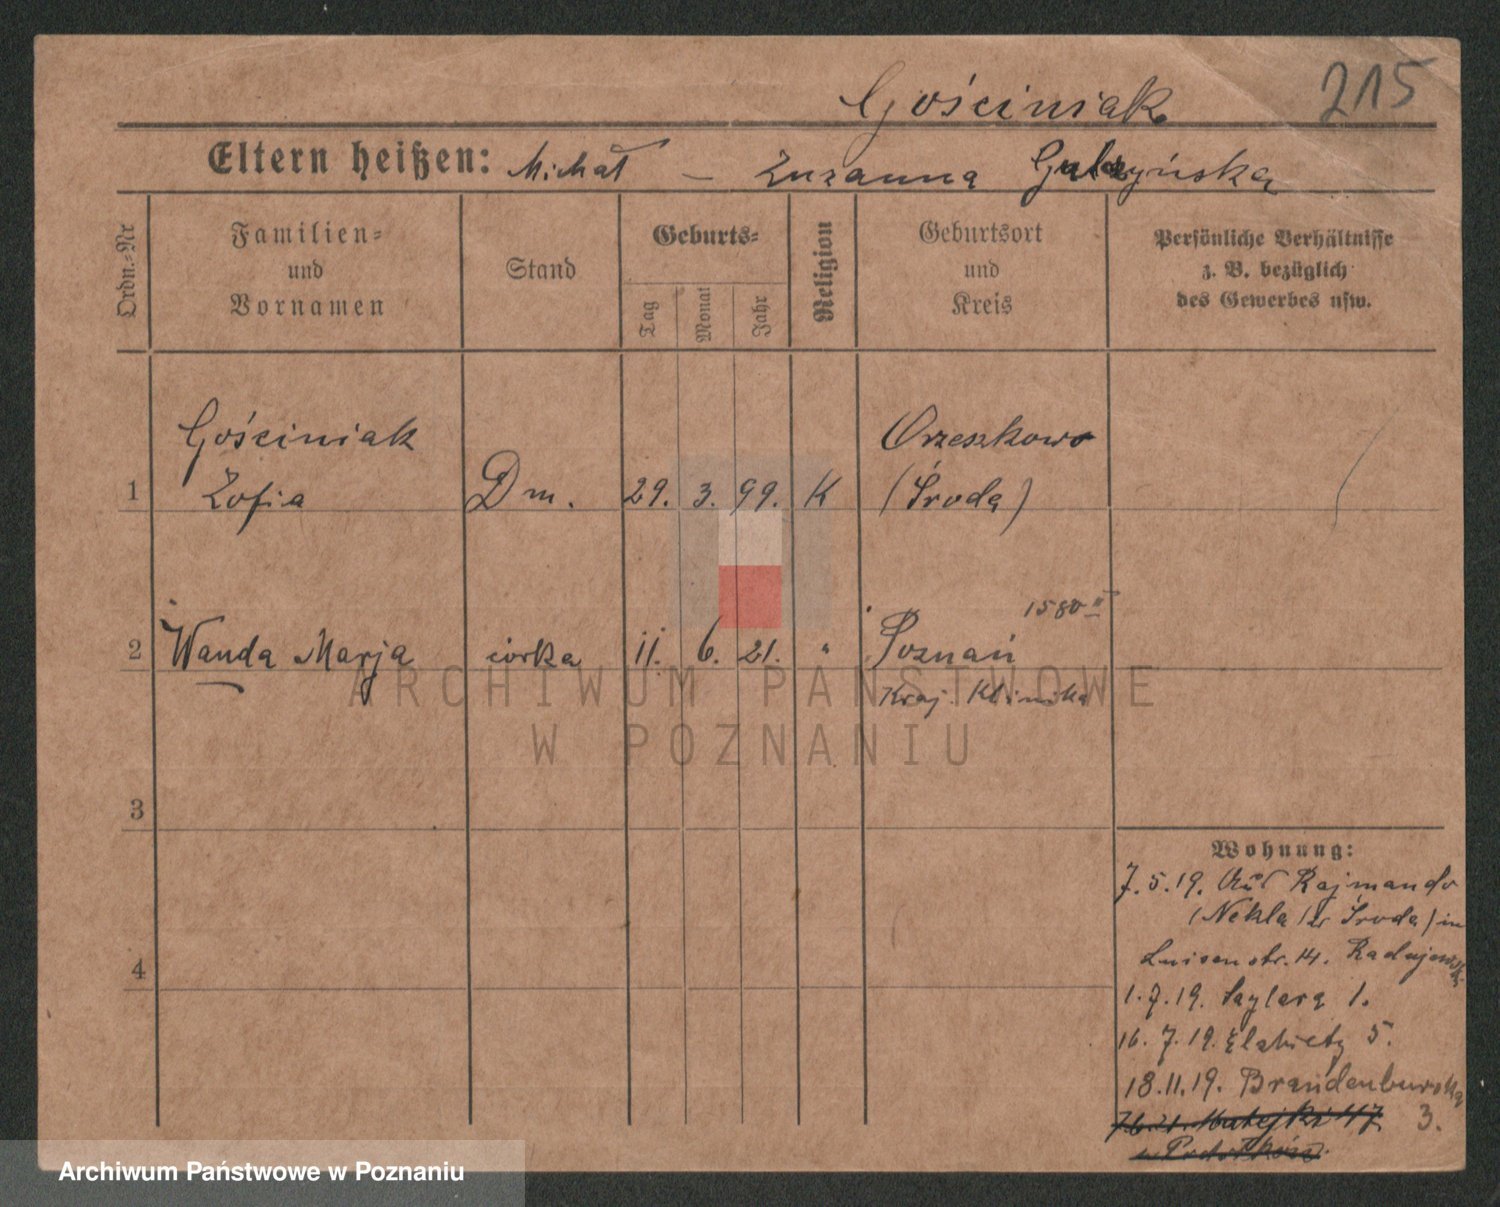 215
Gościniak
Eltern heißen: Michał — Zuzanna
Ordn.-Nr
Familien-
und
Vornamen
Stand
Geburts-
Tag
Monat
Jahr
Religion
Geburtsort
und
Kreis
Persönliche Verhältnisse
z. B. bezüglich
des Gewerbes usw.
Gościniak Orzeszkowo
1 Zofia Dm. 29. 3. 99. K (Środa)
1580 II
2 Wanda Marja córka 11. 6. 21. " Poznań
Kraj. Klinika
3
4
Wohnung:
7.5.19. Aus Rajmundo
(Nekla Środa) in
Luisenstr. 14.
1.7.19. 1.
16.7.19. Elżbiety 5.
18.11.19. Brandenburska
3.
Matejki 47
ARCHIWUM PAŃSTWOWE
W POZNANIU
Archiwum Państwowe w Poznaniu